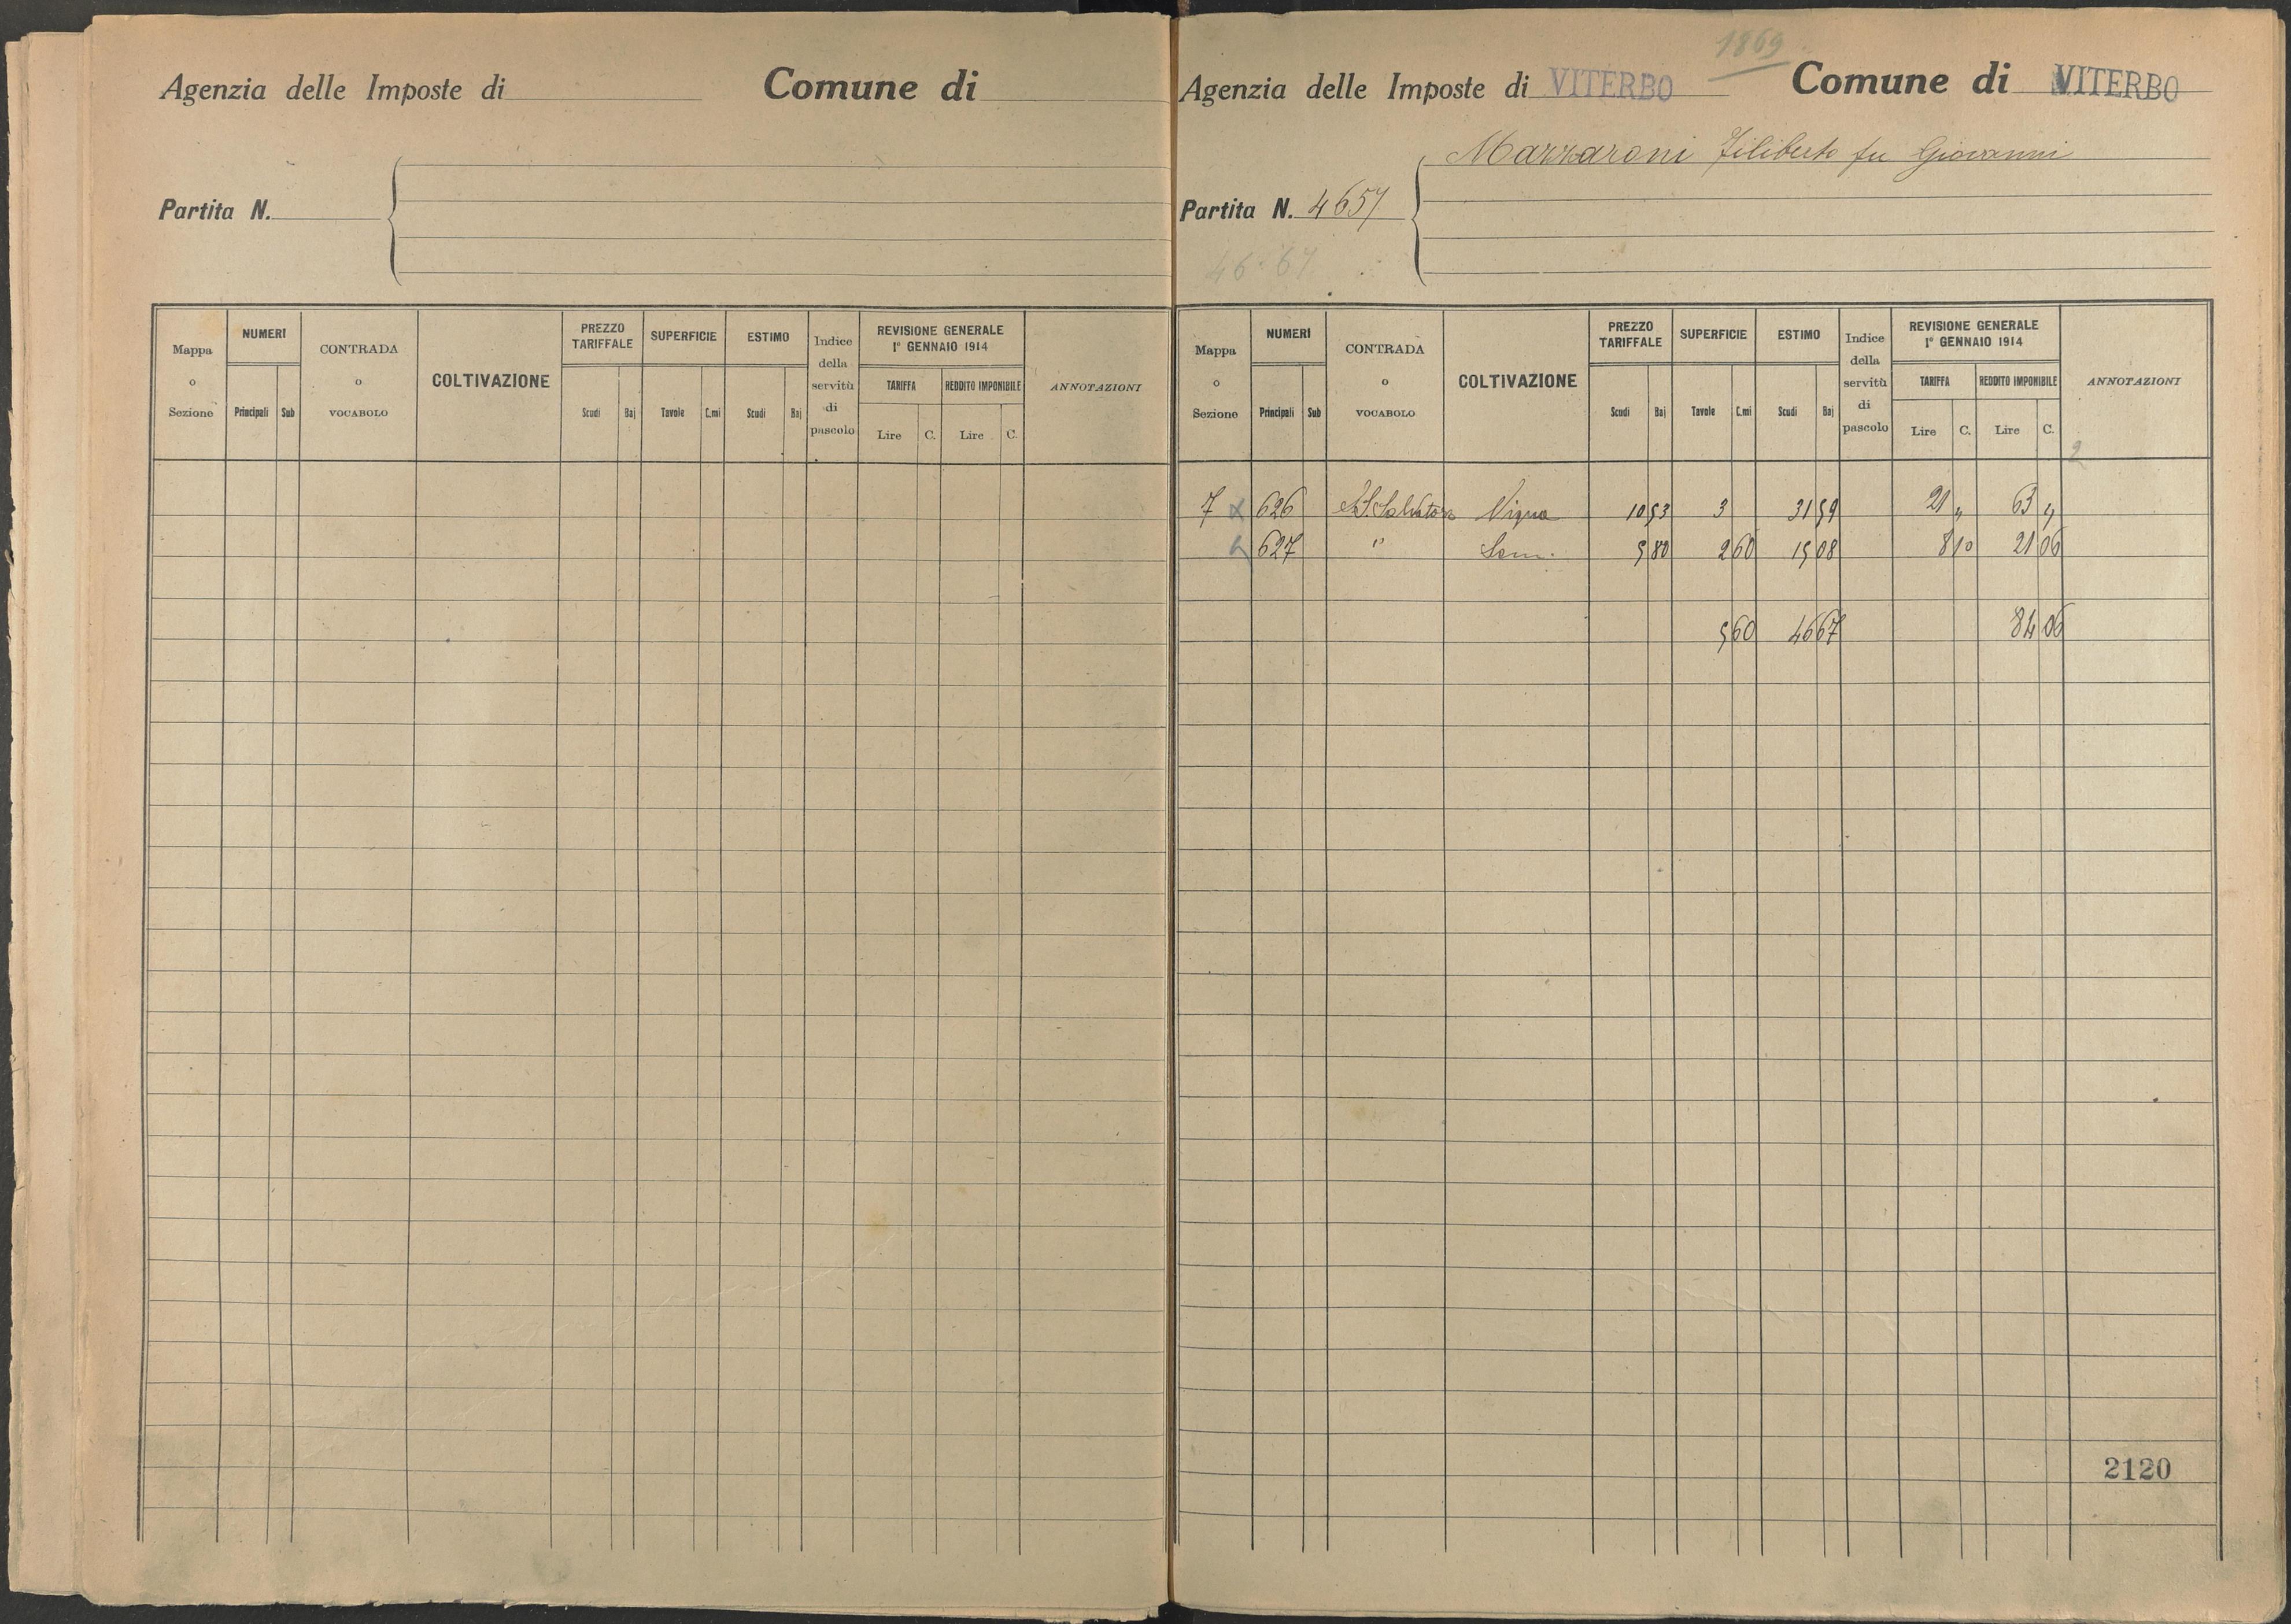 Agenzia delle Imposte di Comune di
Partita N.
Mappa o Sezione NUMERI Principali Sub CONTRADA o VOCABOLO COLTIVAZIONE PREZZO TARIFFALE Scudi Baj SUPERFICIE Tavole C.mi ESTIMO Scudi Baj Indice della servitù di pascolo REVISIONE GENERALE 1° GENNAIO 1914 TARIFFA Lire C. REDDITO IMPONIBILE Lire C. ANNOTAZIONI
1869
Agenzia delle Imposte di VITERBO Comune di VITERBO
Mazzaroni Filiberto fu Giovanni
Partita N. 4657
46 67
Mappa o Sezione NUMERI Principali Sub CONTRADA o VOCABOLO COLTIVAZIONE PREZZO TARIFFALE Scudi Baj SUPERFICIE Tavole C.mi ESTIMO Scudi Baj Indice della servitù di pascolo REVISIONE GENERALE 1° GENNAIO 1914 TARIFFA Lire C. REDDITO IMPONIBILE Lire C. ANNOTAZIONI
2
7 x 626 S. Salvatore Vigna 10 53 3 31 59 21 " 63 "
627 " Sem. 5 80 2 60 15 08 8 10 21 06
5 60 46 67 84 06
2120